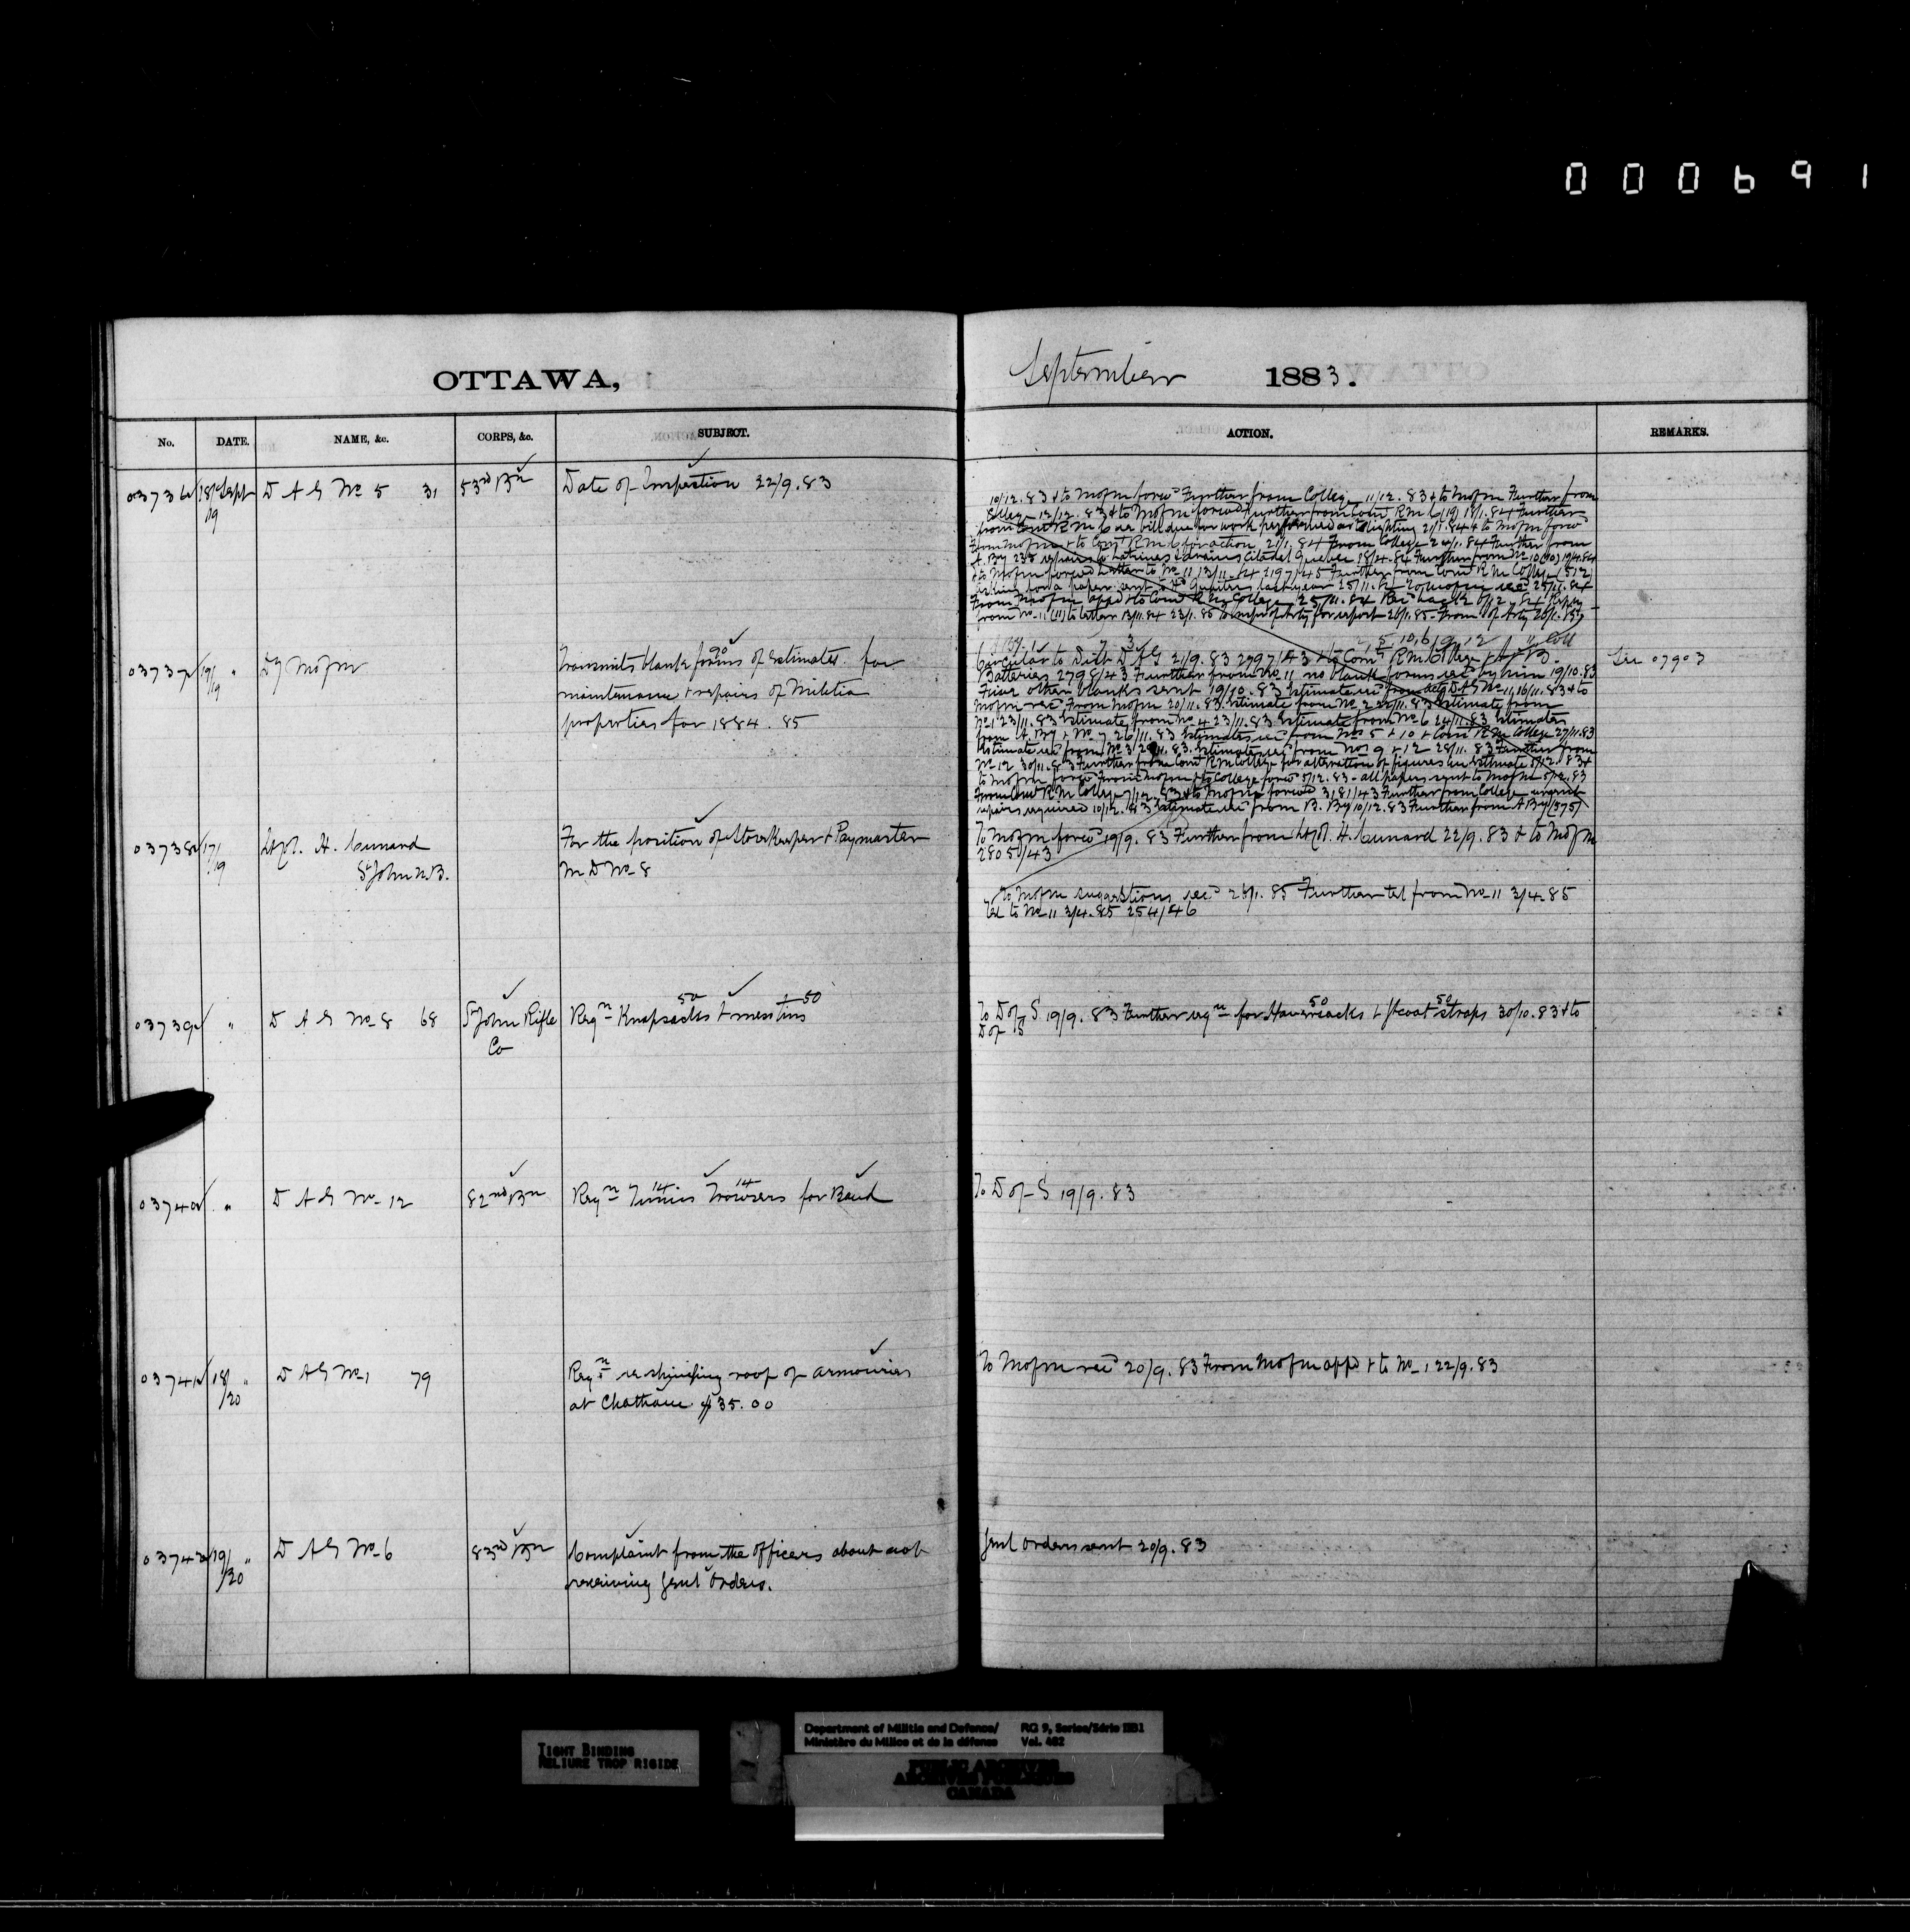 000691
OTTAWA,
September 1883.
No. DATE. NAME, &c. CORPS, &c. SUBJECT. ACTION. REMARKS.
03736 18 Sept /19 D A G No 5 31 53rd Bn Date of Inspection 22/9.83
10/12.83 & to Mofm forwd Further from College 11/12.83 & to Mofm Further from
College 12/12.83 & to Mofm forwd Further from Comt R M C (19) 18/1.84 Further
from Comt R M C bill due for work performed lighting 21/1.84 & to Mofm forwd
From Mofm & to Comt R M C for action 21/1.84 From College 24/1.84 Further from
A By 238 repairs to Latrines & drains Citadel Quebec 18/4.84 Further from No 10
& to Mofm forwd Letter to No 11 13/11.84 Further from Comt R M College (512)
From Mofm appd & to Comt R M College 25/11.84
from No 11 to letter 13/11.84 23/1.85 to Inspr of Arty for report 26/1.85 From I of Arty 28/1.85
03737 19/19 " Dy Mofm
Transmits blank forms 90 of Estimates for
maintenance & repairs of Militia
properties for 1884.85
Circular to Dist D A G 21/9.83 2797/43 & to Comt R. M. College & A & B
Batteries 2798/43 Further from No 11 no blank forms recd by him 19/10.83
Four other blanks sent 19/10.83 Estimate recd from actg D A G No 11 16/11.83 & to
Mofm recd From Mofm 20/11.83 Estimate from No 2 22/11.83 Estimate from
No 1 23/11.83 Estimate from No 4 23/11.83 Estimate from No 6 24/11.83 Estimates
from A. By & No 7 26/11.83 Estimates recd from Nos 5 & 10 & Comt R M College 27/11.83
Estimate recd from No 3 /11.83. Estimates recd from Nos 9 & 12 28/11.83 Further from
No 12 30/11.83 Further from Comt R M College for alteration of figures in Estimate 5/12.83 &
to Mofm forwd From Mofm & to College forwd 5/12.83 - all papers sent to Mofm 5/12.83
From Comt R M College 7/12.83 & to Mofm forwd 3181/43 Further from College urgent
repairs required 10/12.83 Estimate recd from B. By 10/12.83 Further from A By (375)
See 07903
03738 17/19 Lt Col. H. Cunard
St John N.B.
For the position of Storekeeper & Paymaster
M D No 8
To Mofm forwd 19/9.83 Further from Lt Col. H. Cunard 22/9.83 & to Mofm
2805/43
To Mofm suggestions recd 28/1.85 Further tel from No 11 3/4.85
Tel to No 11 3/4.85 254/46
03739 " D A G No 8 68 St John Rifle
Co
Reqn Knapsacks 50 & mess tins 50
To D of S 19/9.83 Further reqn for Haversacks 50 & Gtcoat straps 50 30/10.83 & to
D of S
03740 " D A G No 12 82nd Bn Reqn Tunics 14 Trowsers 14 for Band
To D of S 19/9.83
03741 18/20 " D A G No 1 79
Reqn re shingling roof of armouries
at Chatham $35.00
To Mofm recd 20/9.83 From Mofm appd & to No 1 22/9.83
03742 19/20 " D A G No 6 83rd Bn Complaint from the Officers about not
receiving Genl Orders.
Genl Orders sent 20/9.83
TIGHT BINDING
RELIURE TROP RIGIDE
Department of Militia and Defence/
Ministère du Milice et de la défense
RG 9, Series/Série IIB1
Vol. 462
PUBLIC ARCHIVES
ARCHIVES PUBLIQUES
CANADA